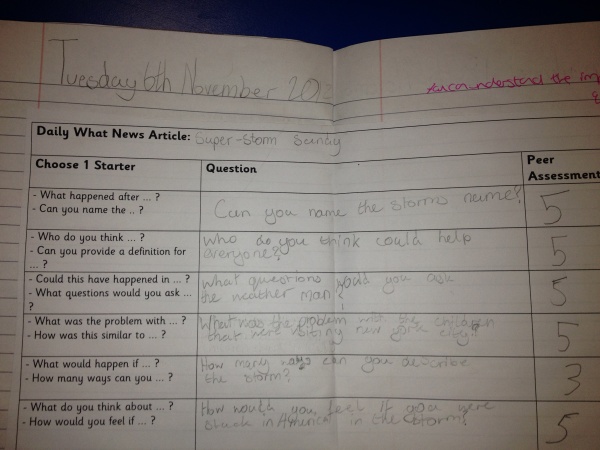 Tuesday 6th November 2012
can understand the im
Daily What News Article: Super-storm Sandy
Choose 1 Starter
Question
Peer Assessment
- What happened after ... ?
- Can you name the .. ?
Can you name the storms name?
5
- Who do you think ... ?
- Can you provide a definition for
... ?
Who do you think could help
everyone?
5
- Could this have happened in ... ?
- What questions would you ask ...
?
What questions would you ask
the weather man?
5
- What was the problem with ... ?
- How was this similar to ... ?
What was the problem with the children
that were visiting new york city?
5
- What would happen if ... ?
- How many ways can you ... ?
How many ways can you describe
the storm?
3
- What do you think about ... ?
- How would you feel if ... ?
How would you feel if you were
stuck in America in the storm?
5